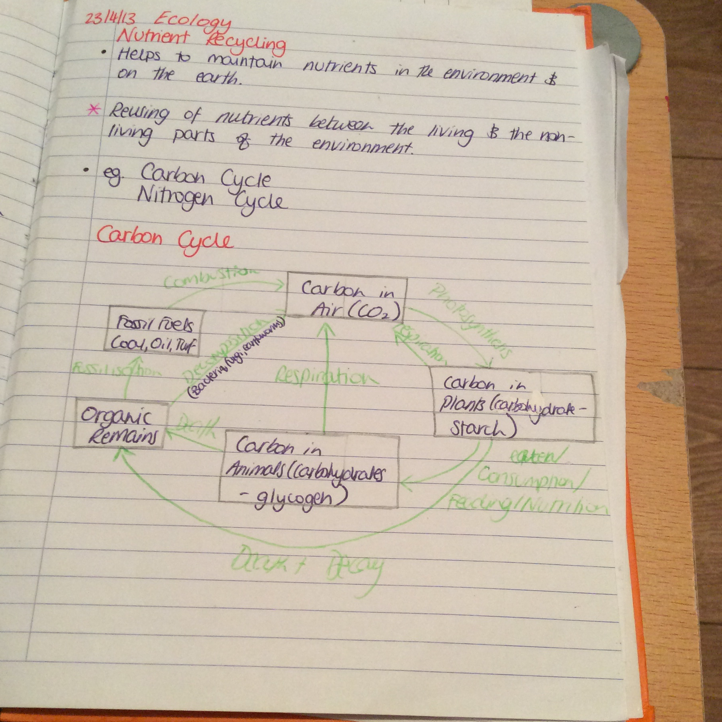 23/4/13 Ecology
Nutrient Recycling
• Helps to maintain nutrients in the environment &
on the earth.
* Reusing of nutrients between the living & the non-
living parts of the environment.
• eg. Carbon Cycle
Nitrogen Cycle
Carbon Cycle
Combustion
Carbon in
Air (CO₂)
Photosynthesis
Fossil Fuels
Coal, Oil, Turf
Decomposition
(Bacteria, fungi, earthworms)
Respiration
Fossilisation
Respiration
Carbon in
Plants (carbohydrate -
starch)
Organic
Remains
Death
Carbon in
Animals (carbohydrates
- glycogen)
eaten/
Consumption/
Feeding/Nutrition
Death + Decay